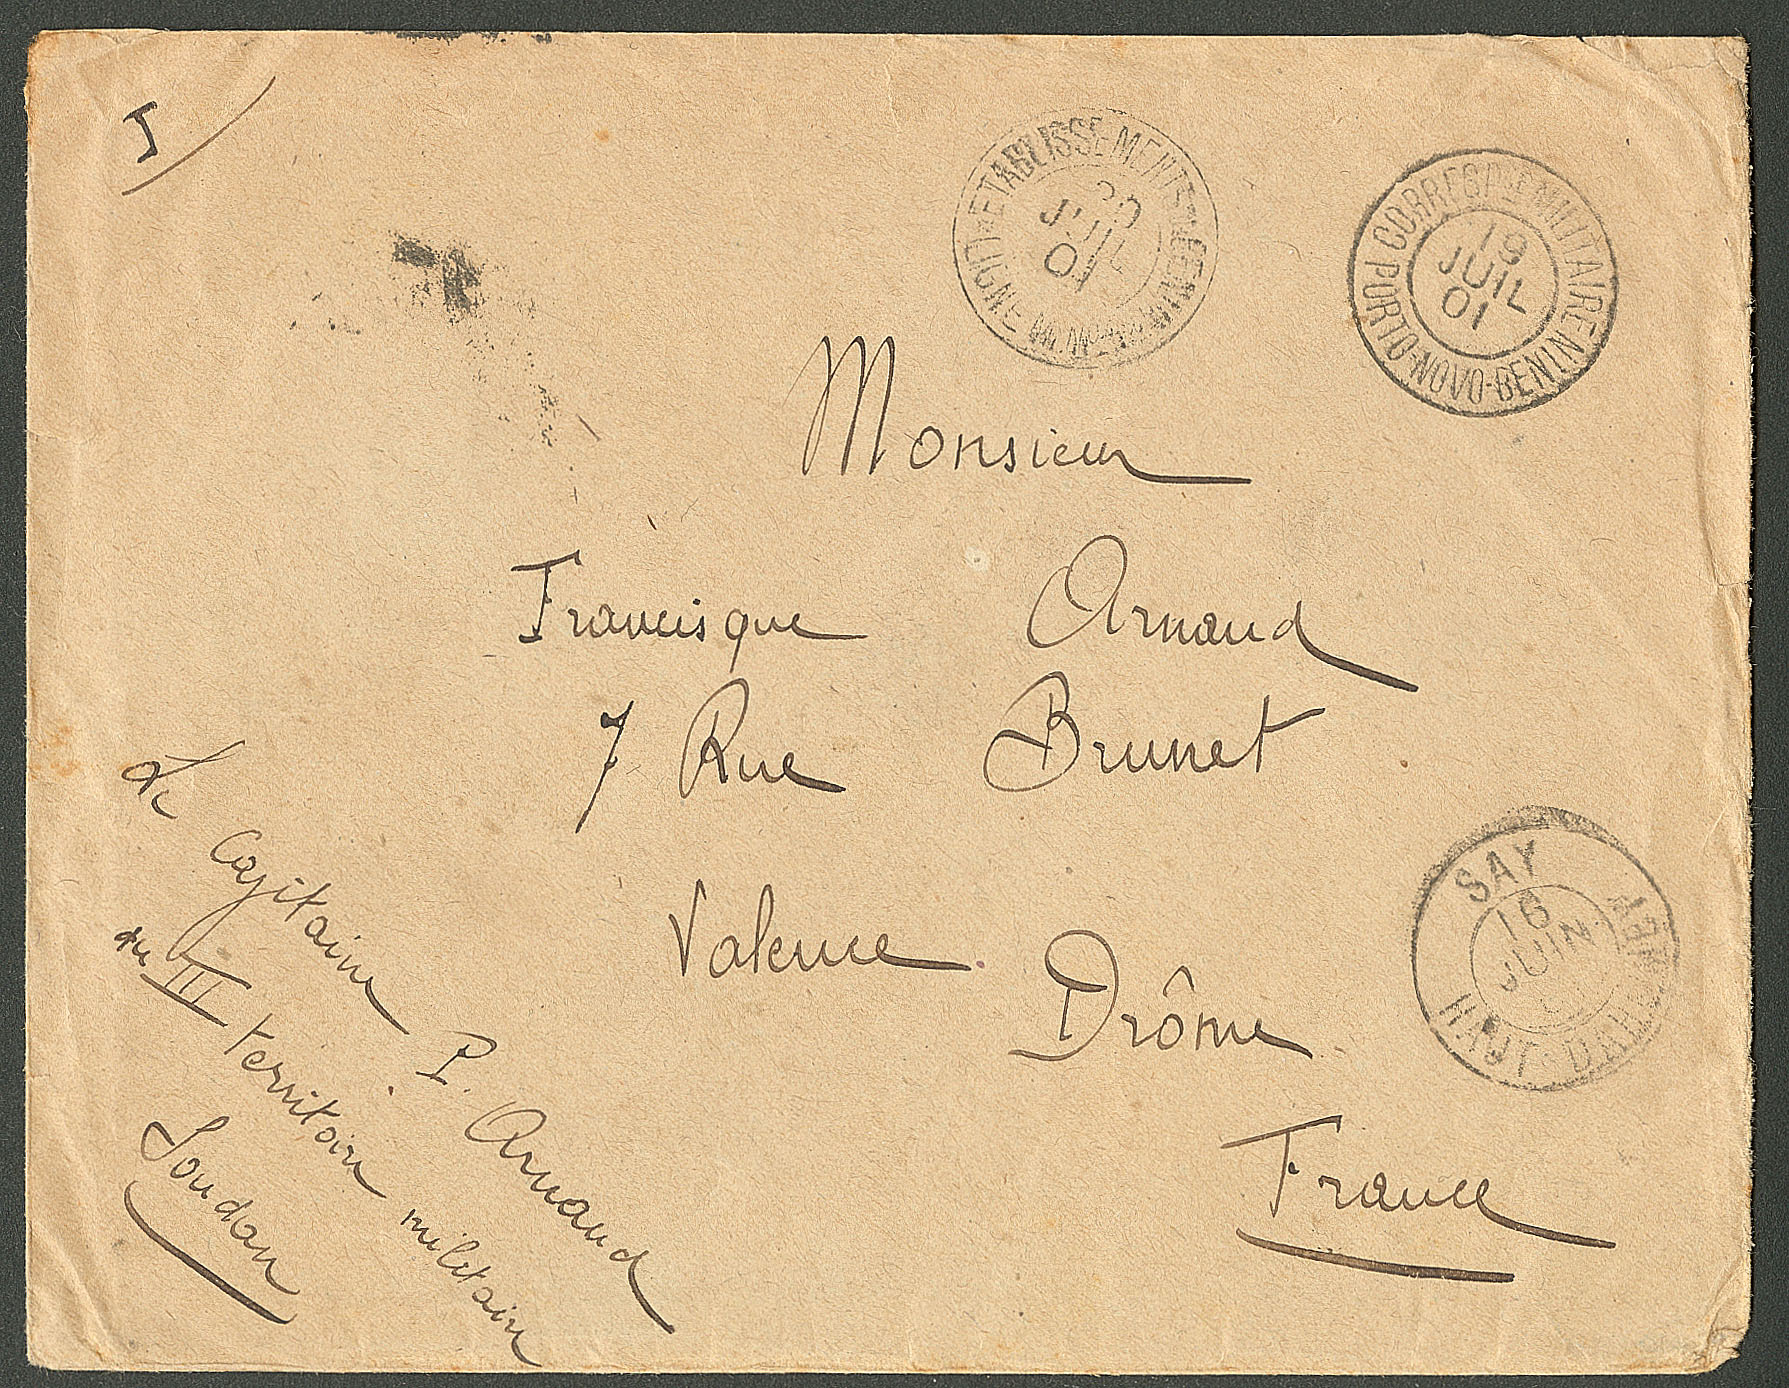 5
ETABLISSEMENTS
20
JUIL
01
CORRESPce MILITAIRE
19
JUIL
01
PORTO-NOVO-BENIN
Monsieur
Francisque Arnaud
7 Rue Brunet
Valence
Drôme
France
SAY
16
JUIN
01
HAUT-DAHOMEY
Le Capitaine P. Arnaud
du III territoire militaire
Soudan